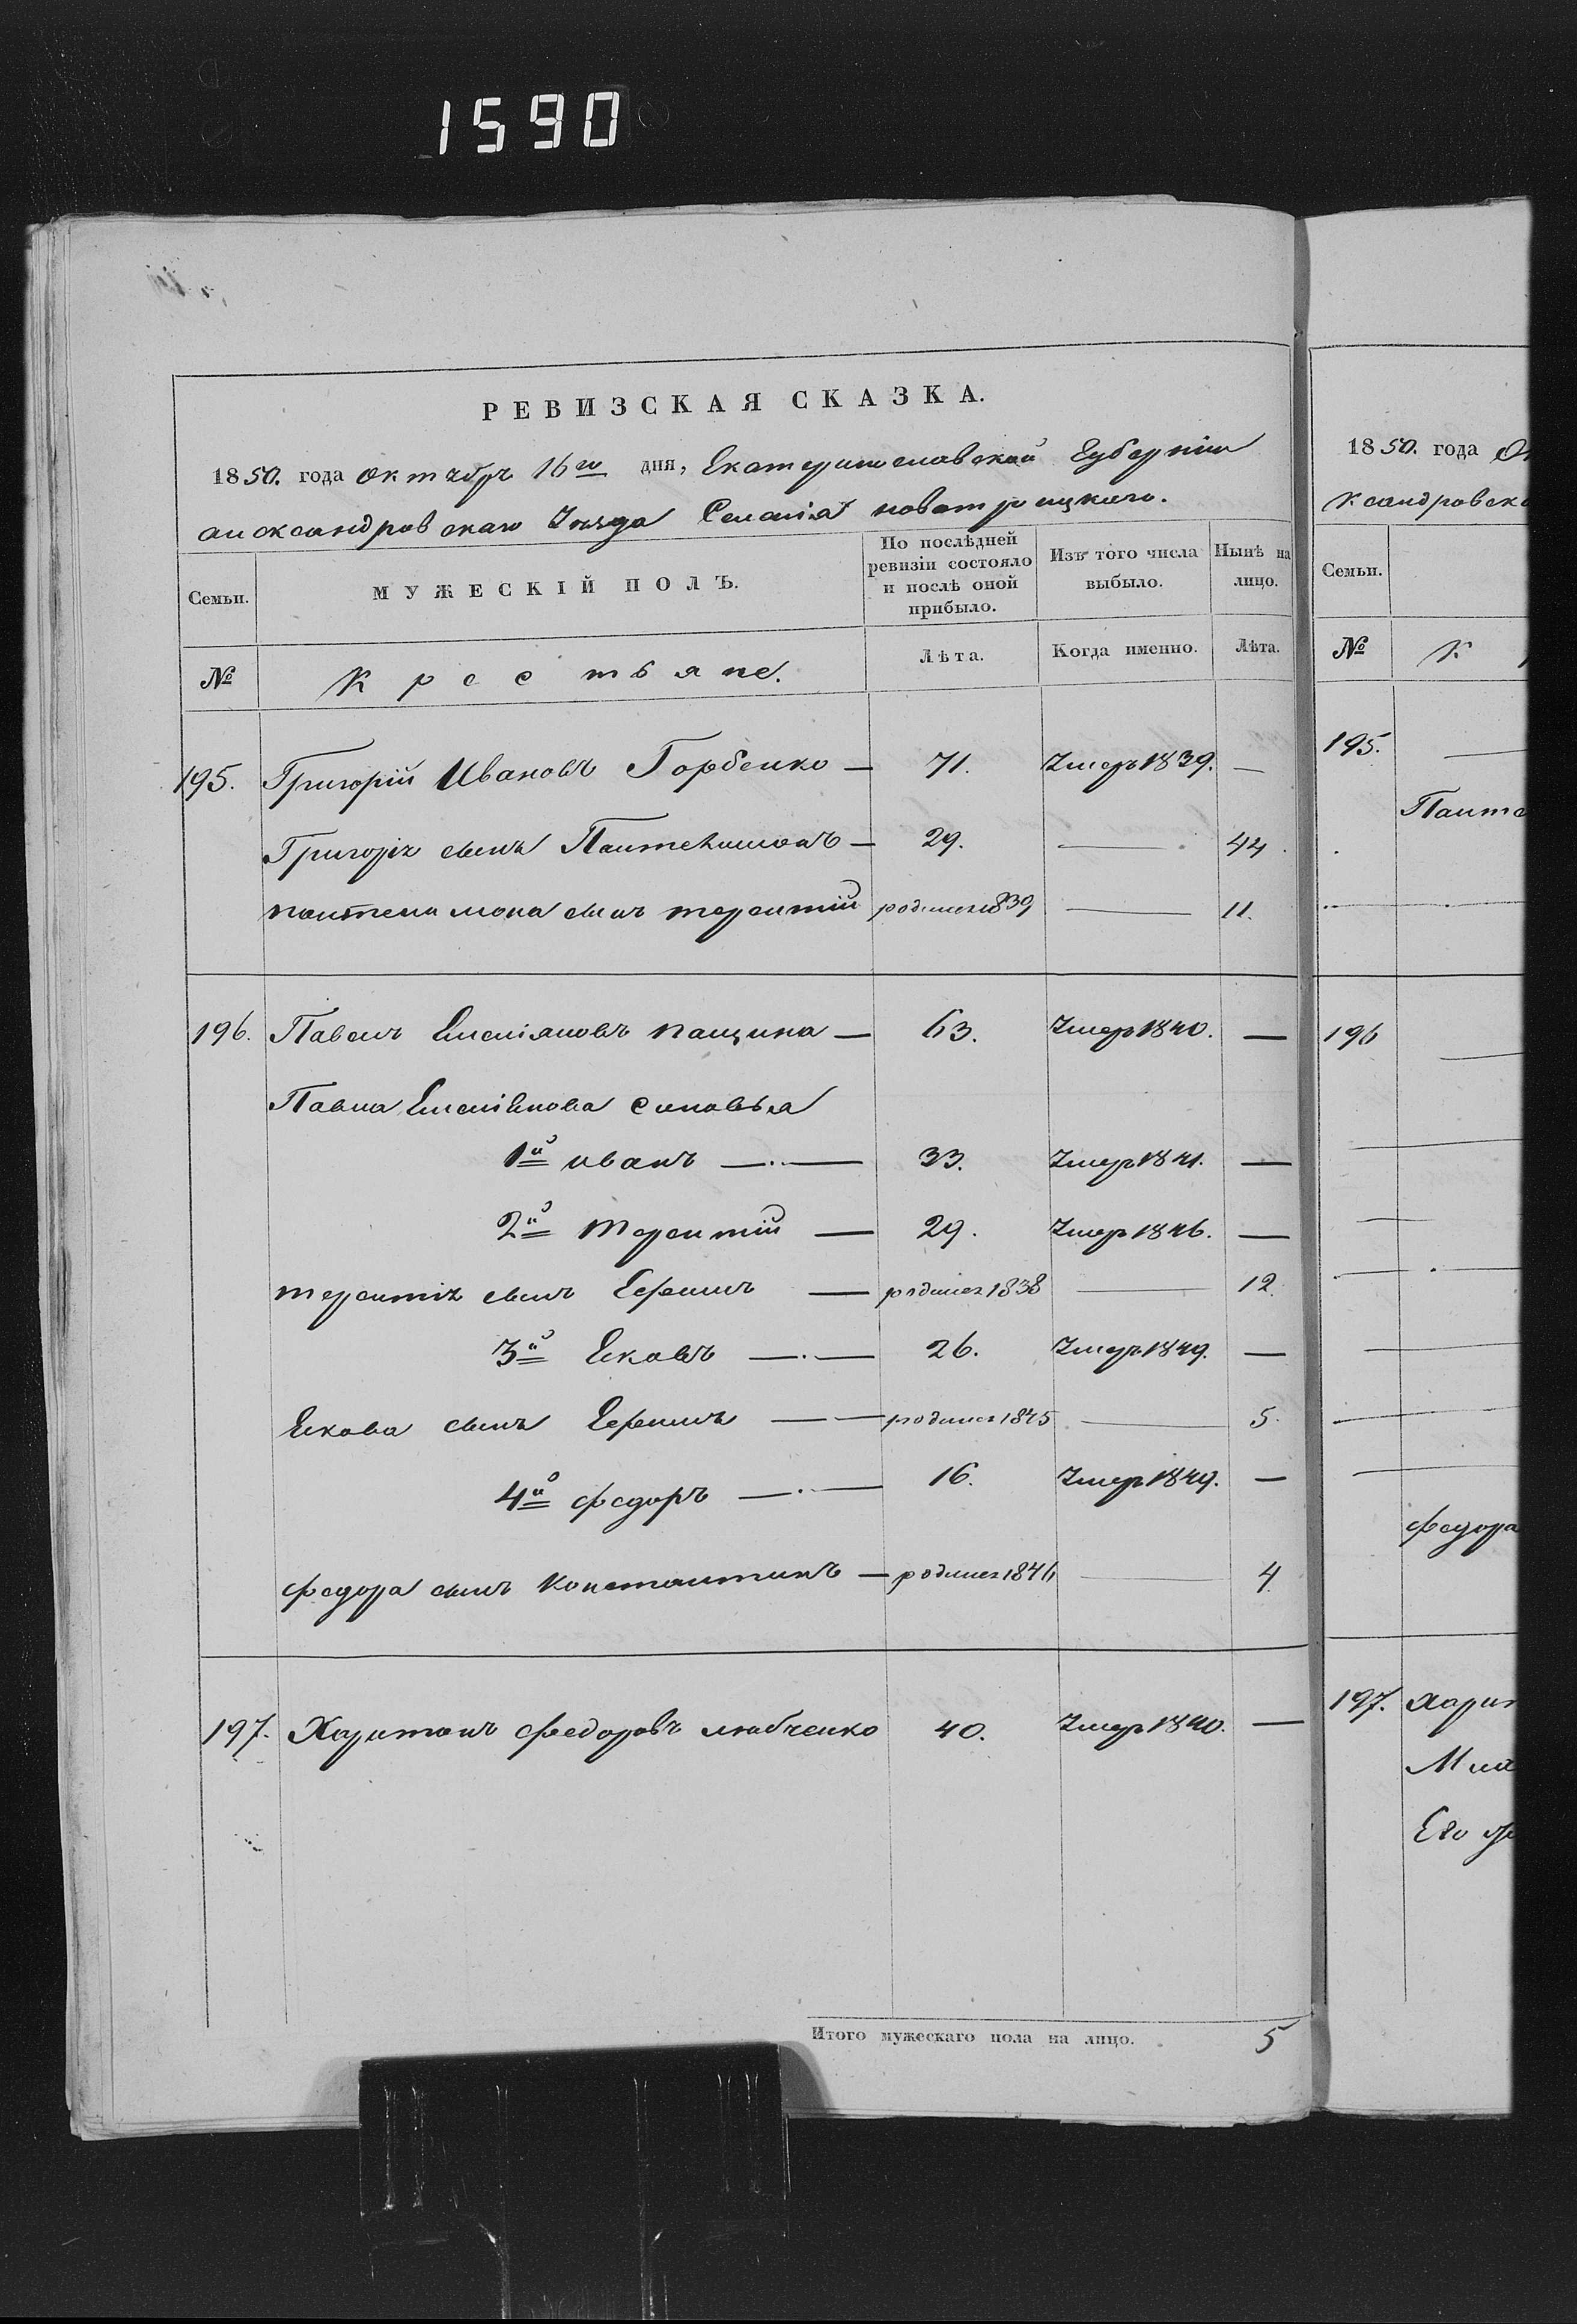 1590
РЕВИЗСКАЯ СКАЗКА.
1850. года октября 16го дня, Екатеринославской Губерніи
александровскаго Уезда Селенія новотроицкаго.
Семьи.
МУЖЕСКІЙ ПОЛЪ.
По послѣдней ревизіи состояло и послѣ оной прибыло.
Изъ того числа выбыло.
Нынѣ на лицо.
№
Крестьяне.
Лѣта.
Когда именно.
Лѣта.
195. Григорій Ивановъ Горбенко — 71. Умеръ 1839. —
Григорія сынъ Пантелимонъ — 29. — 44.
пантелимона сынъ терентій родился 1839 — 11.
196. Павелъ Емеліяновъ пащина — 63. Умеръ 1840. —
Павла Емеліянова сыновья
1й иванъ — 33. Умеръ 1841. —
2й терентій — 29. Умеръ 1846. —
терентія сынъ Ефимъ — родился 1838 — 12.
3й Яковъ — 26. Умеръ 1849. —
Якова сынъ Ефимъ — родился 1845 — 5.
4й федоръ — 16. Умеръ 1849. —
федора сынъ Константинъ — родился 1846 — 4.
197. Харитонъ федоровъ любченко 40. Умеръ 1840. —
Итого мужескаго пола на лицо. 5
1850. года
ксандровск
Семьи.
№ К
195.
Панте
196
федора
197. харит
Его